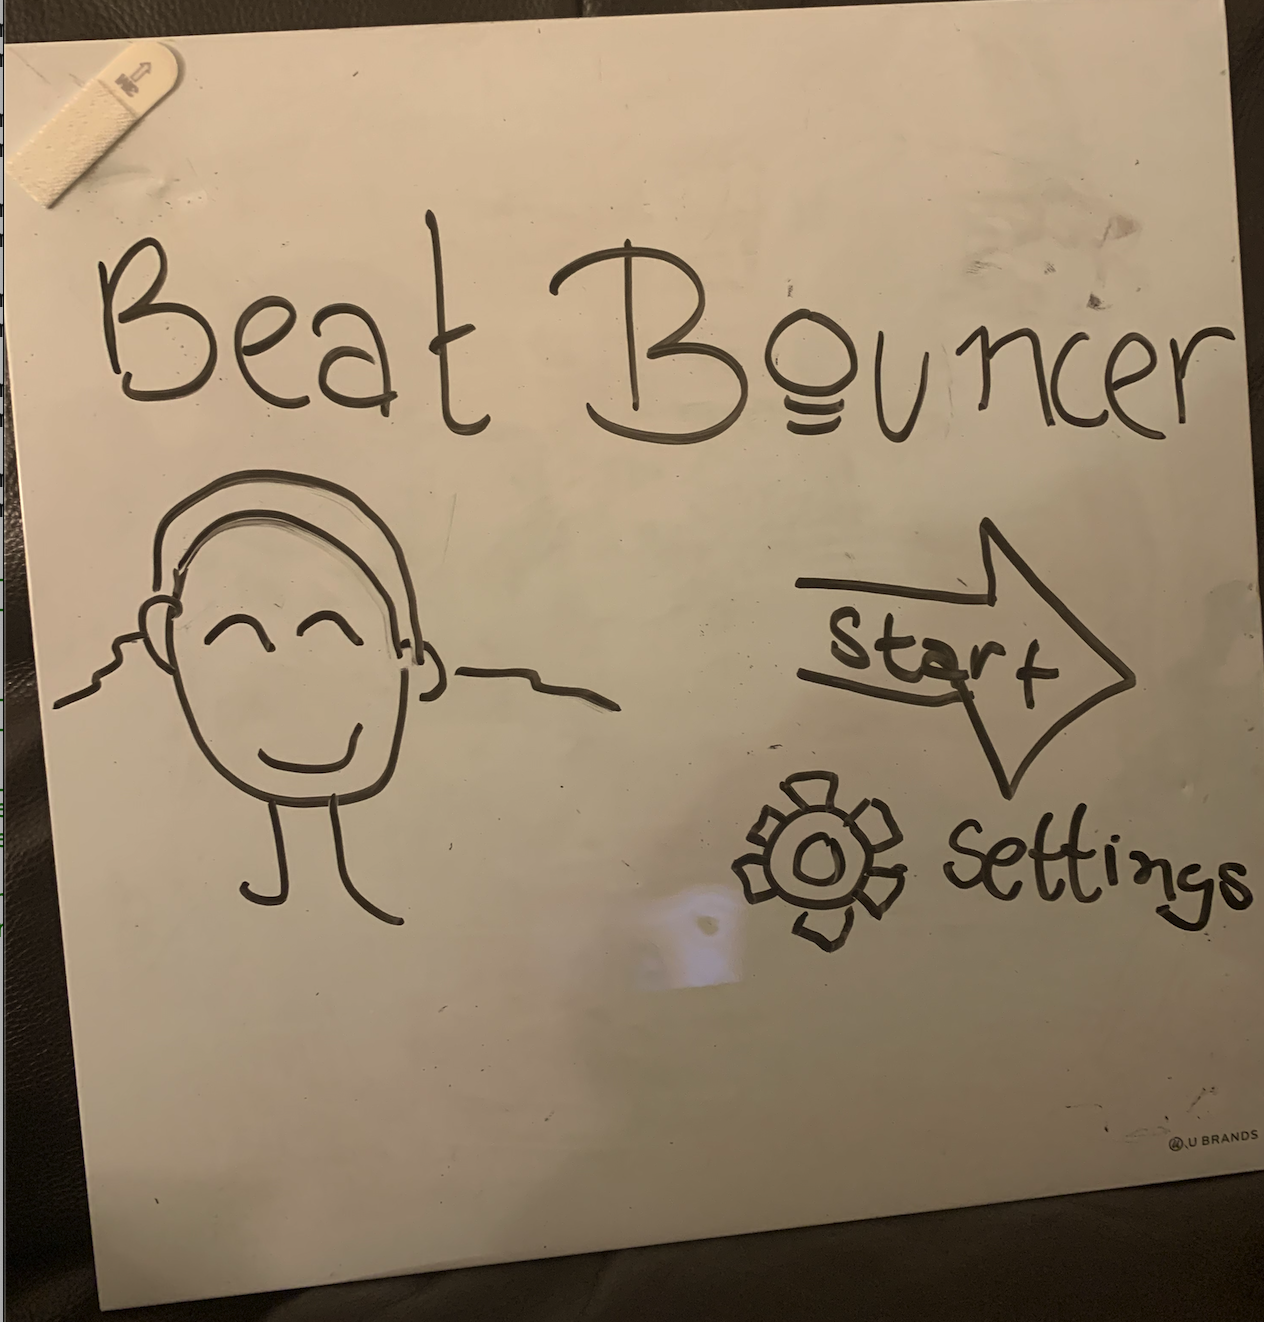 Beat Bouncer
Start
settings
U BRANDS